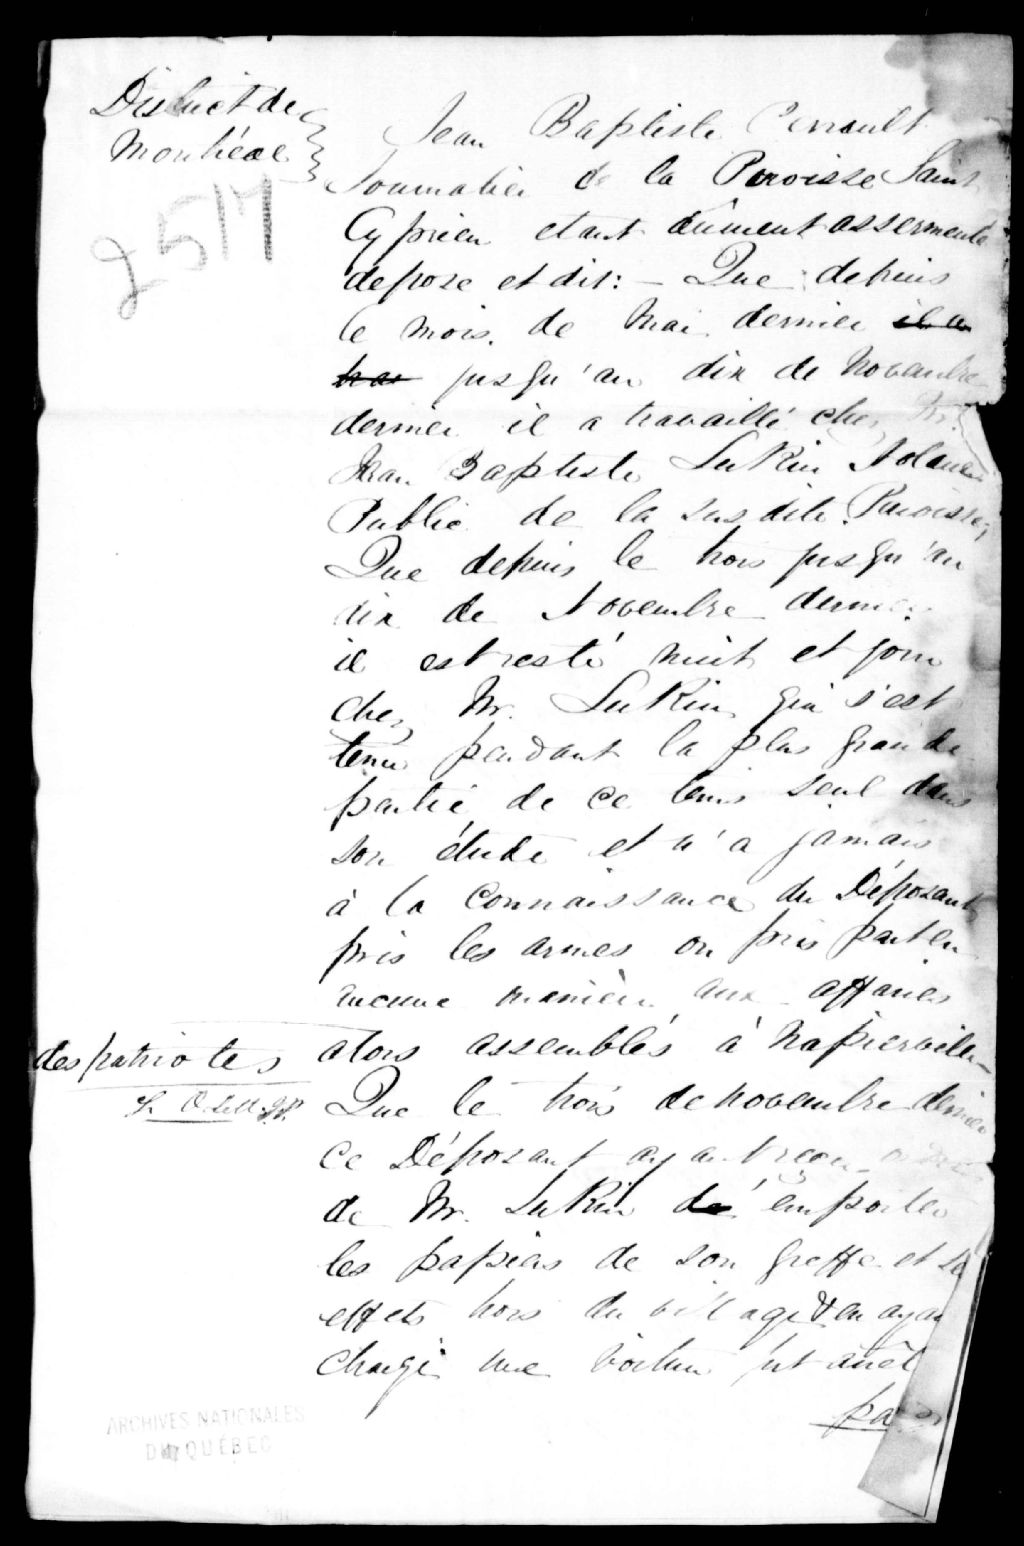 District de
Montréal
2517
Jean Baptiste Perrault
Journalier de la Paroisse Saint
Cyprien etant dûment assermenté
depose et dit: – Que depuis
le mois de Mai dernier il a
jusqu'au dix de Novembre
dernier il a travaillé chez Mr.
Jean Baptiste LuKin Notaire
Public de la susdite Paroisse,
Que depuis le trois jusqu'au
dix de Novembre dernier
il est resté nuit et jour
chez Mr. LuKin qui s'est
tenu pendant la plus grande
partie de ce tems seul dans
son étude et n'a jamais
à la connaissance du Déposant
pris les armes ou pris part en
aucune manière aux affaires
des patriotes
alors assemblés à Napierville –
Que le trois de novembre dernier
ce Déposant ayant reçu ordre
de Mr. LuKin d'emporter
les papiers de son greffe et
effets hors du village & en ayant
chargé une voiture fut arrêté
ARCHIVES NATIONALES
DU QUÉBEC